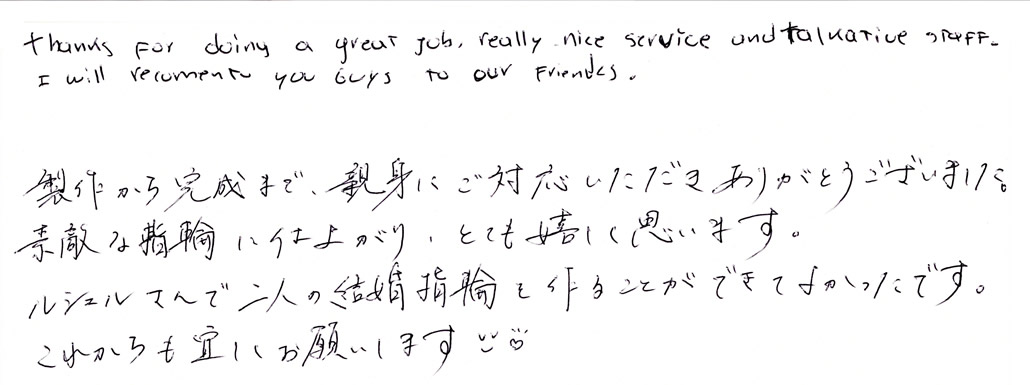 thanks for doing a great job, really nice service and talkative staff.
I will recomend you guys to our friends.
製作から完成まで、親身にご対応いただき、ありがとうございました。
素敵な指輪に仕上がり、とても嬉しく思います。
ルシェルさんで二人の結婚指輪を作ることができてよかったです。
これからも宜しくお願いします